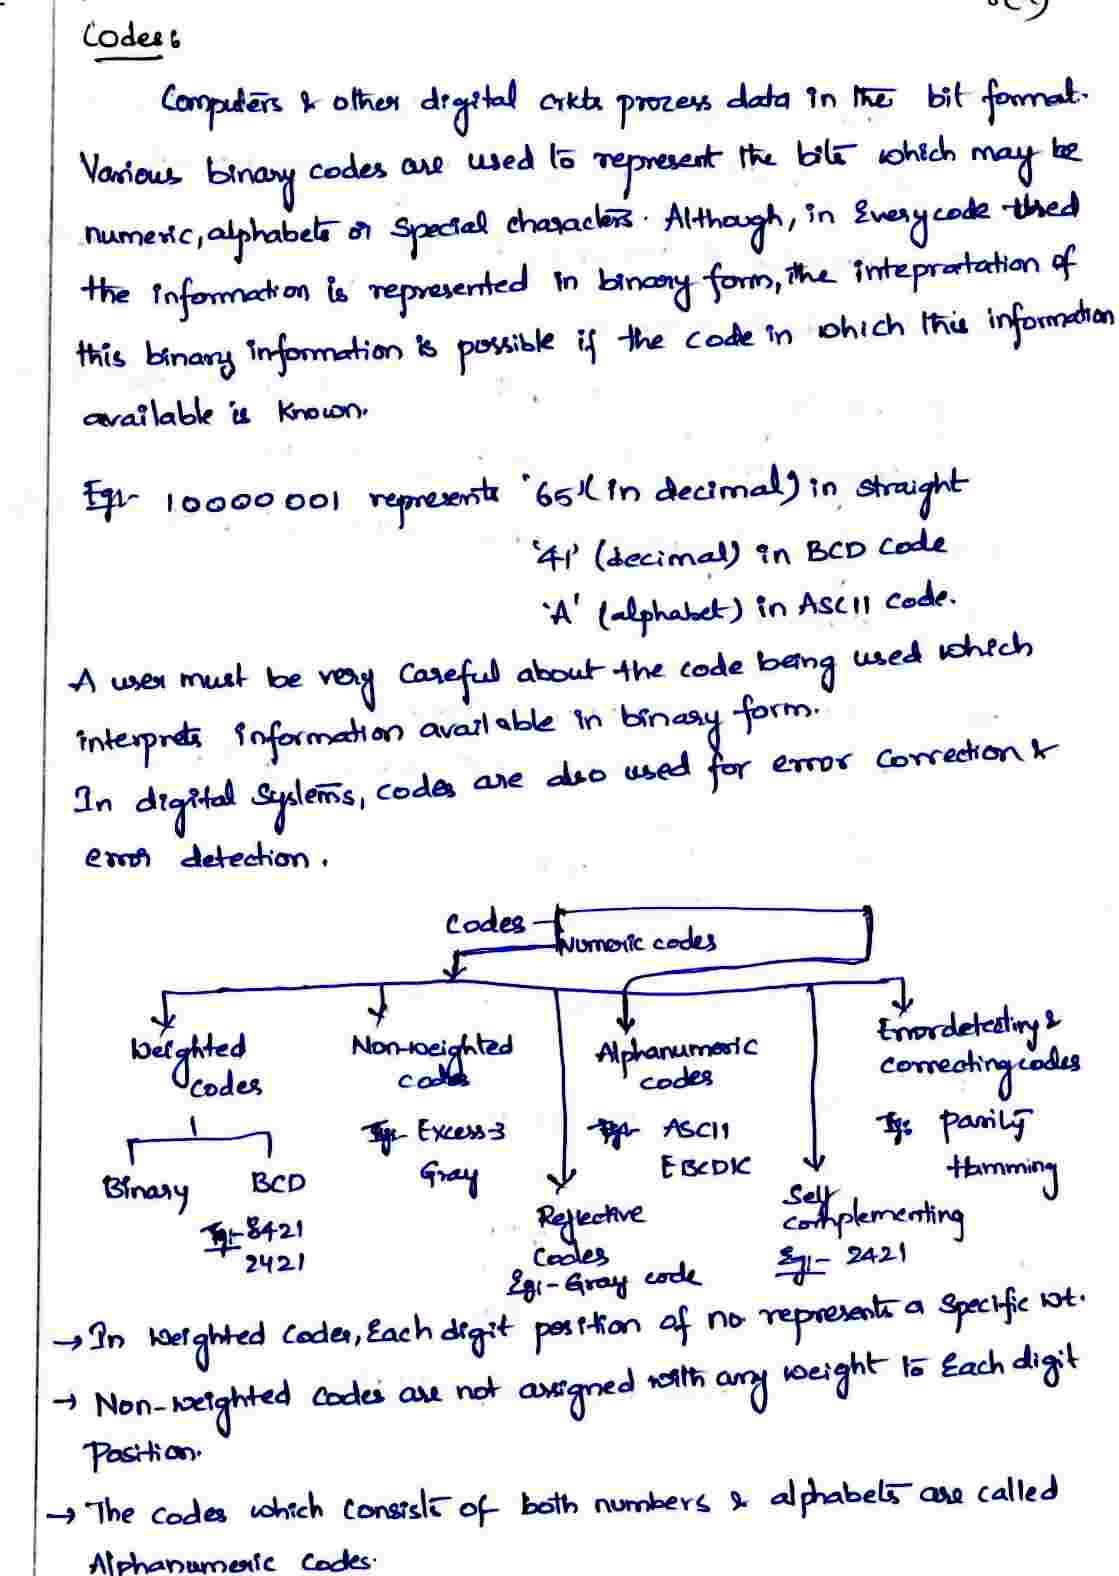 Codes:
Computers & other digital crkts prozess data in the bit format.
Various binary codes are used to represent the bits which may be
numeric, alphabets or special characters. Although, in every code used
the information is represented in binary form, the intepratation of
this binary information is possible if the code in which this information
available is known.
Eg:- 10000001 represents '65' (in decimal) in straight
'41' (decimal) in BCD code
'A' (alphabet) in ASCII code.
A user must be very careful about the code being used which
interprets information available in binary form.
In digital systems, codes are also used for error correction &
error detection.
Codes
Numeric codes
Weighted codes
Non-weighted codes
Alphanumeric codes
Error detecting & correcting codes
Eg:- Excess-3
Gray
Eg:- ASCII
EBCDIC
Eg: parity
Hamming
Binary
BCD
Eg:- 8421
2421
Reflective
Codes
Eg:- Gray code
Self
complementing
Eg:- 2421
→ In weighted codes, Each digit position of no. represents a specific wt.
→ Non-weighted codes are not assigned with any weight to Each digit
Position.
→ The codes which consists of both numbers & alphabets are called
Alphanumeric codes.